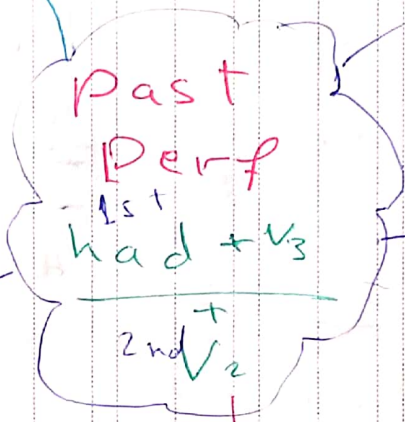 Past
Perf
1st
had + V3
+
2nd V2